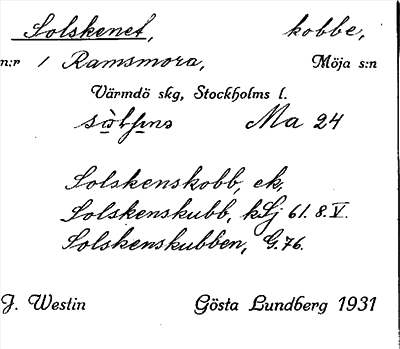 Solskenet, kobbe,
n:r 1 Ramsmora, Möja s:n
Värmdö skg, Stockholms l.
Ma 24
Solskenskobb, ek.
Solskenskubb, kSj 61. 8. V.
Solskenskubben, G. 76.
J. Westin Gösta Lundberg 1931